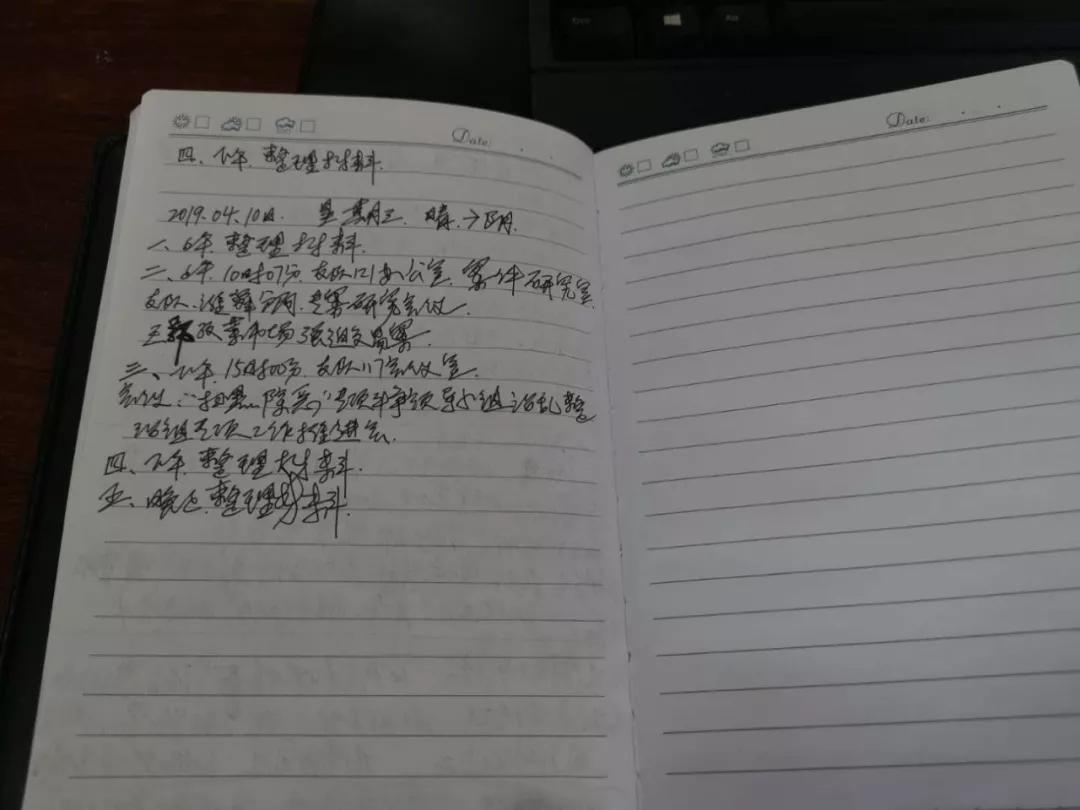 Date:
Date:
四、下午.整理材料.
2019.04.10日. 星期三. 晴→阴.
一、上午.整理材料.
二、上午.10时07分.支队121办公室.案件研究室.
支队、淮 分局.专案研究会议.
三、下午.15时00分.支队117会议室.
会议:“扫黑除恶”专项斗争领导小组治乱整
治组专项工作推进会.
四、下午.整理材料.
五、晚上.整理材料.